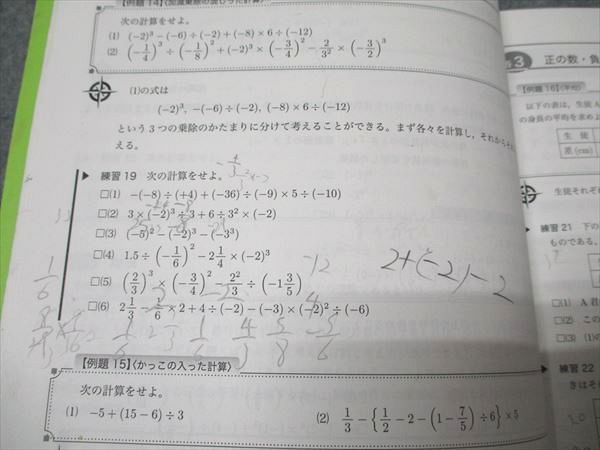 【例題 14】〈加減乗除の混じった計算〉
次の計算をせよ。
(1) (−2)³−(−6)÷(−2)+(−8)×6÷(−12)
(2) (−1/4)³÷(−1/8)²+(−2)³×(−3/4)²−2/3²×(−3/2)³
(1)の式は
(−2)³, −(−6)÷(−2), (−8)×6÷(−12)
という3つの乗除のかたまりに分けて考えることができる。まず各々を計算し、それから
える。
▶ 練習 19 次の計算をせよ。
□(1) −(−8)÷(+4)+(−36)÷(−9)×5÷(−10)
□(2) 3×(−2)³÷3+6÷3²×(−2)
□(3) (−5)²−(−2)³−(−3³)
□(4) 1.5÷(−1/6)²−2 1/4×(−2)³
□(5) (2/3)³×(−3/4)²−2²/3÷(−1 3/5)
□(6) 2 1/3−1/6×2+4÷(−2)−(−3)×(−2)²÷(−6)
−12
2+(−2)−2
1/6 2 1/3 1/6 4/3 5/8 −5/6
【例題 15】〈かっこの入った計算〉
次の計算をせよ。
(1) −5+(15−6)÷3
(2) 1/3−{1/2−2−(1−7/5)÷6}×5
3 正の数・負
【例題 16】〈平均〉
以下の表は、生徒A
の身長の平均を求めよ
生 徒
差(cm)
生徒それぞれ
▶ 練習 21 下の
ものである。
□(1) A君
□(2) この
□(3) (1)の
▶ 練習 22
きはそ